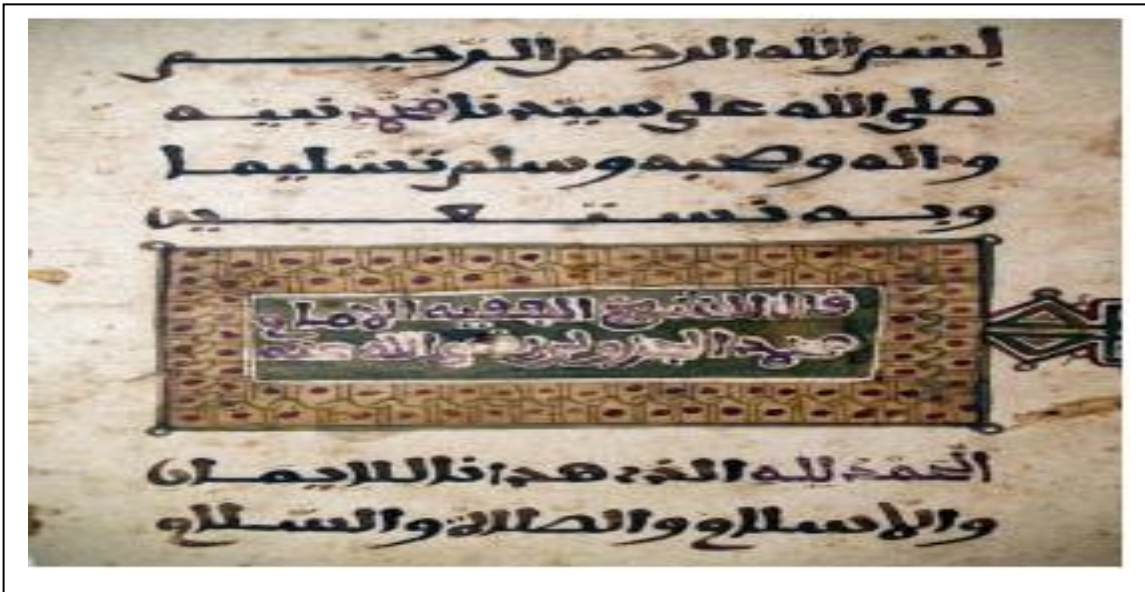 بسم الله الرحمن الرحيم
صلى الله على سيدنا محمد نبيه
وءاله وصحبه وسلم تسليما
وبه نستعين
قال الشيخ الفقيه الإمام
محمد الجزولي رضي الله عنه
الحمد لله الذي هدانا للايمان
والإسلام والصلاة والسلام